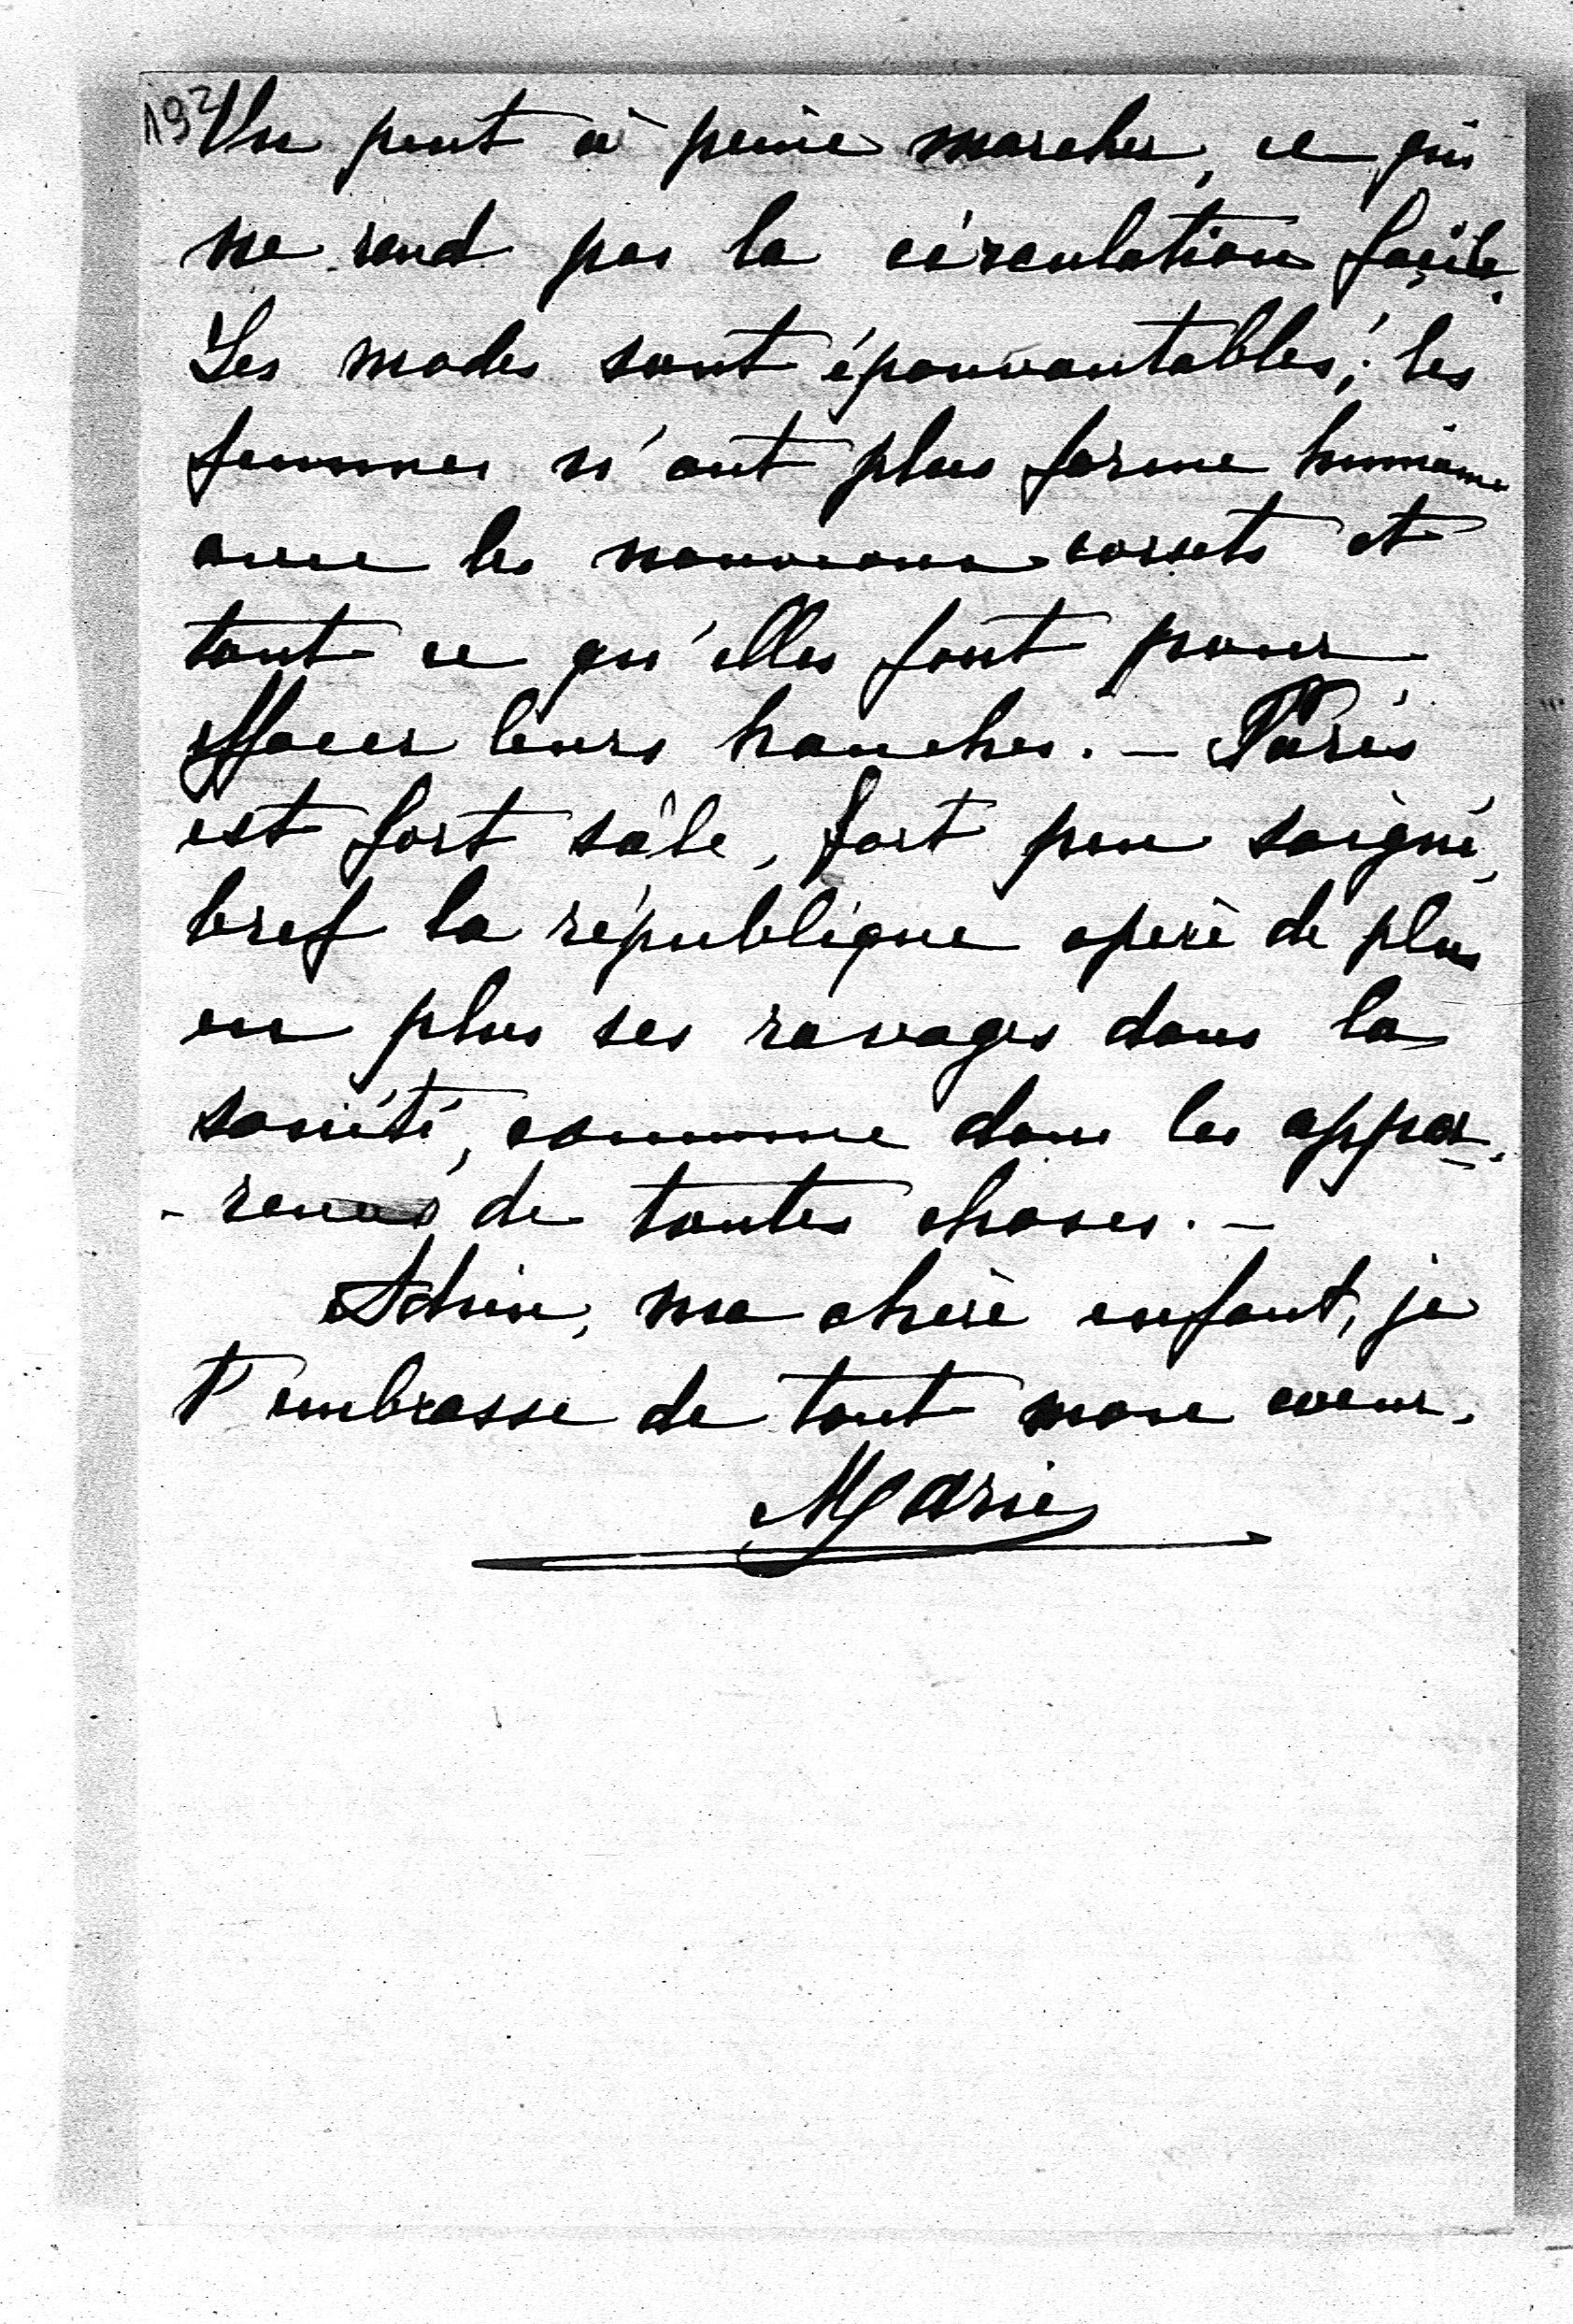 192
On peut à peine marcher, ce qui
ne rend pas la circulation facile.
Les modes sont épouvantables; les
femmes n'ont plus forme humaine
avec les nouveaux corsets et
tout ce qu'elles font pour
effacer leurs hanches. - Paris
est fort sâle, fort peu soigné,
bref la république opère de plus
en plus ses ravages dans la
société, comme dans les appa-
- rences de toutes choses. -
Adieu, ma chère enfant, je
t'embrasse de tout mon coeur.
Marie